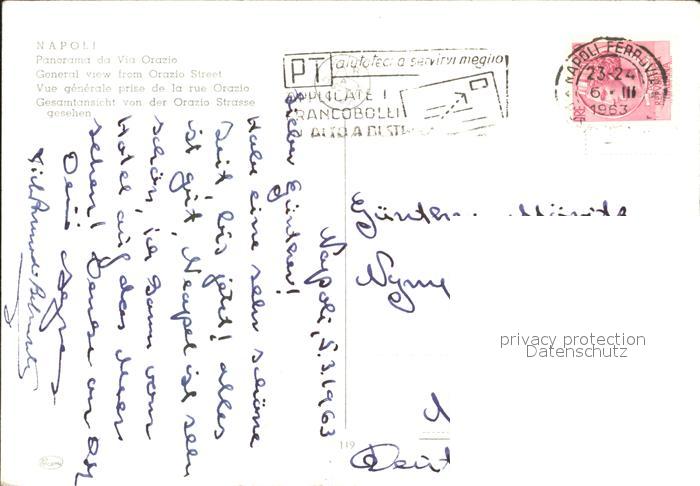 NAPOLI
Panorama da Via Orazio
General view from Orazio Street
Vue générale prise de la rue Orazio
Gesamtansicht von der Orazio Strasse
gesehen
PT aiutateci a servirvi meglio
APPLICATE I
FRANCOBOLLI
ALTO A DEST
NAPOLI FERROVIA
23-24
6 · III
1963
Napoli, 5.3.1963
Lieber Günther!
Habe eine sehr schöne
Zeit, bis jetzt! alles
ist gut, Neapel ist sehr
schön, ich kann vom
Hotel auf das Meer
sehen! Denke an Dich
Dein
Günther
Nym
Deut
119
privacy protection
Datenschutz